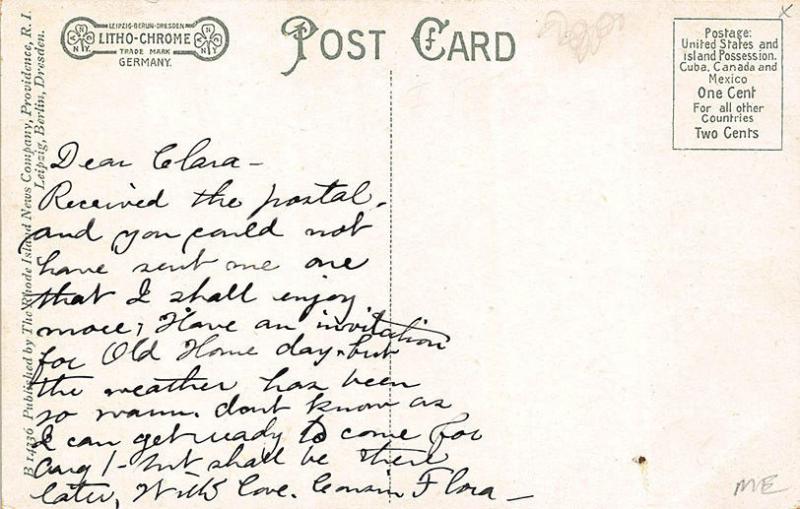 LEIPZIG-BERLIN-DRESDEN
LITHO-CHROME
TRADE MARK
GERMANY.
POST CARD
Postage:
United States and
island Possession.
Cuba, Canada and
Mexico
One Cent
For all other
Countries
Two Cents
B 14236 Published by The Rhode Island News Company, Providence, R. I.
Leipzig, Berlin, Dresden.
Dear Clara -
Received the postal,
and you could not
have sent me one
that I shall enjoy
more, Have an invitation
for Old Home day, but
the weather has been
so warm. dont know as
I can get ready to come for
Aug 1 - but shall be there
later, With love. Cousin Flora -
ME